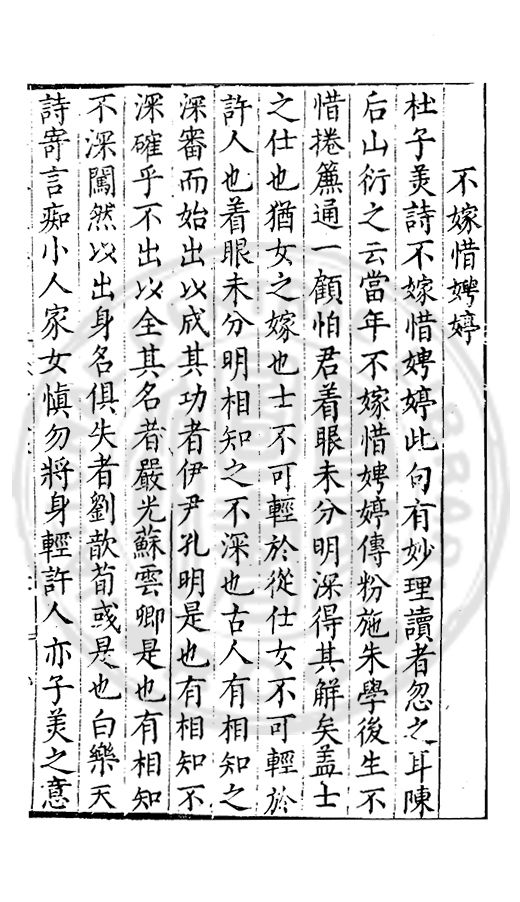 不嫁惜娉婷
杜子羙詩不嫁惜娉婷此句有妙理讀者忽之耳陳
后山衍之云當年不嫁惜娉婷傳粉施朱學後生不
惜捲簾通一顧怕君着眼未分明深得其解矣盖士
之仕也猶女之嫁也士不可輕於從仕女不可輕於
許人也着眼未分明相知之不深也古人有相知之
深審而始出以成其功者伊尹孔明是也有相知不
深確乎不出以全其名者嚴光蘇雲卿是也有相知
不深闖然以出身名俱失者劉歆荀彧是也白樂天
詩寄言痴小人家女慎勿將身輕許人亦子羙之意